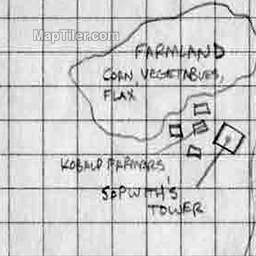 MapTiler.com
FARMLAND
CORN, VEGETABLES,
FLAX
KOBALD FARMERS
SOPWITH'S
TOWER